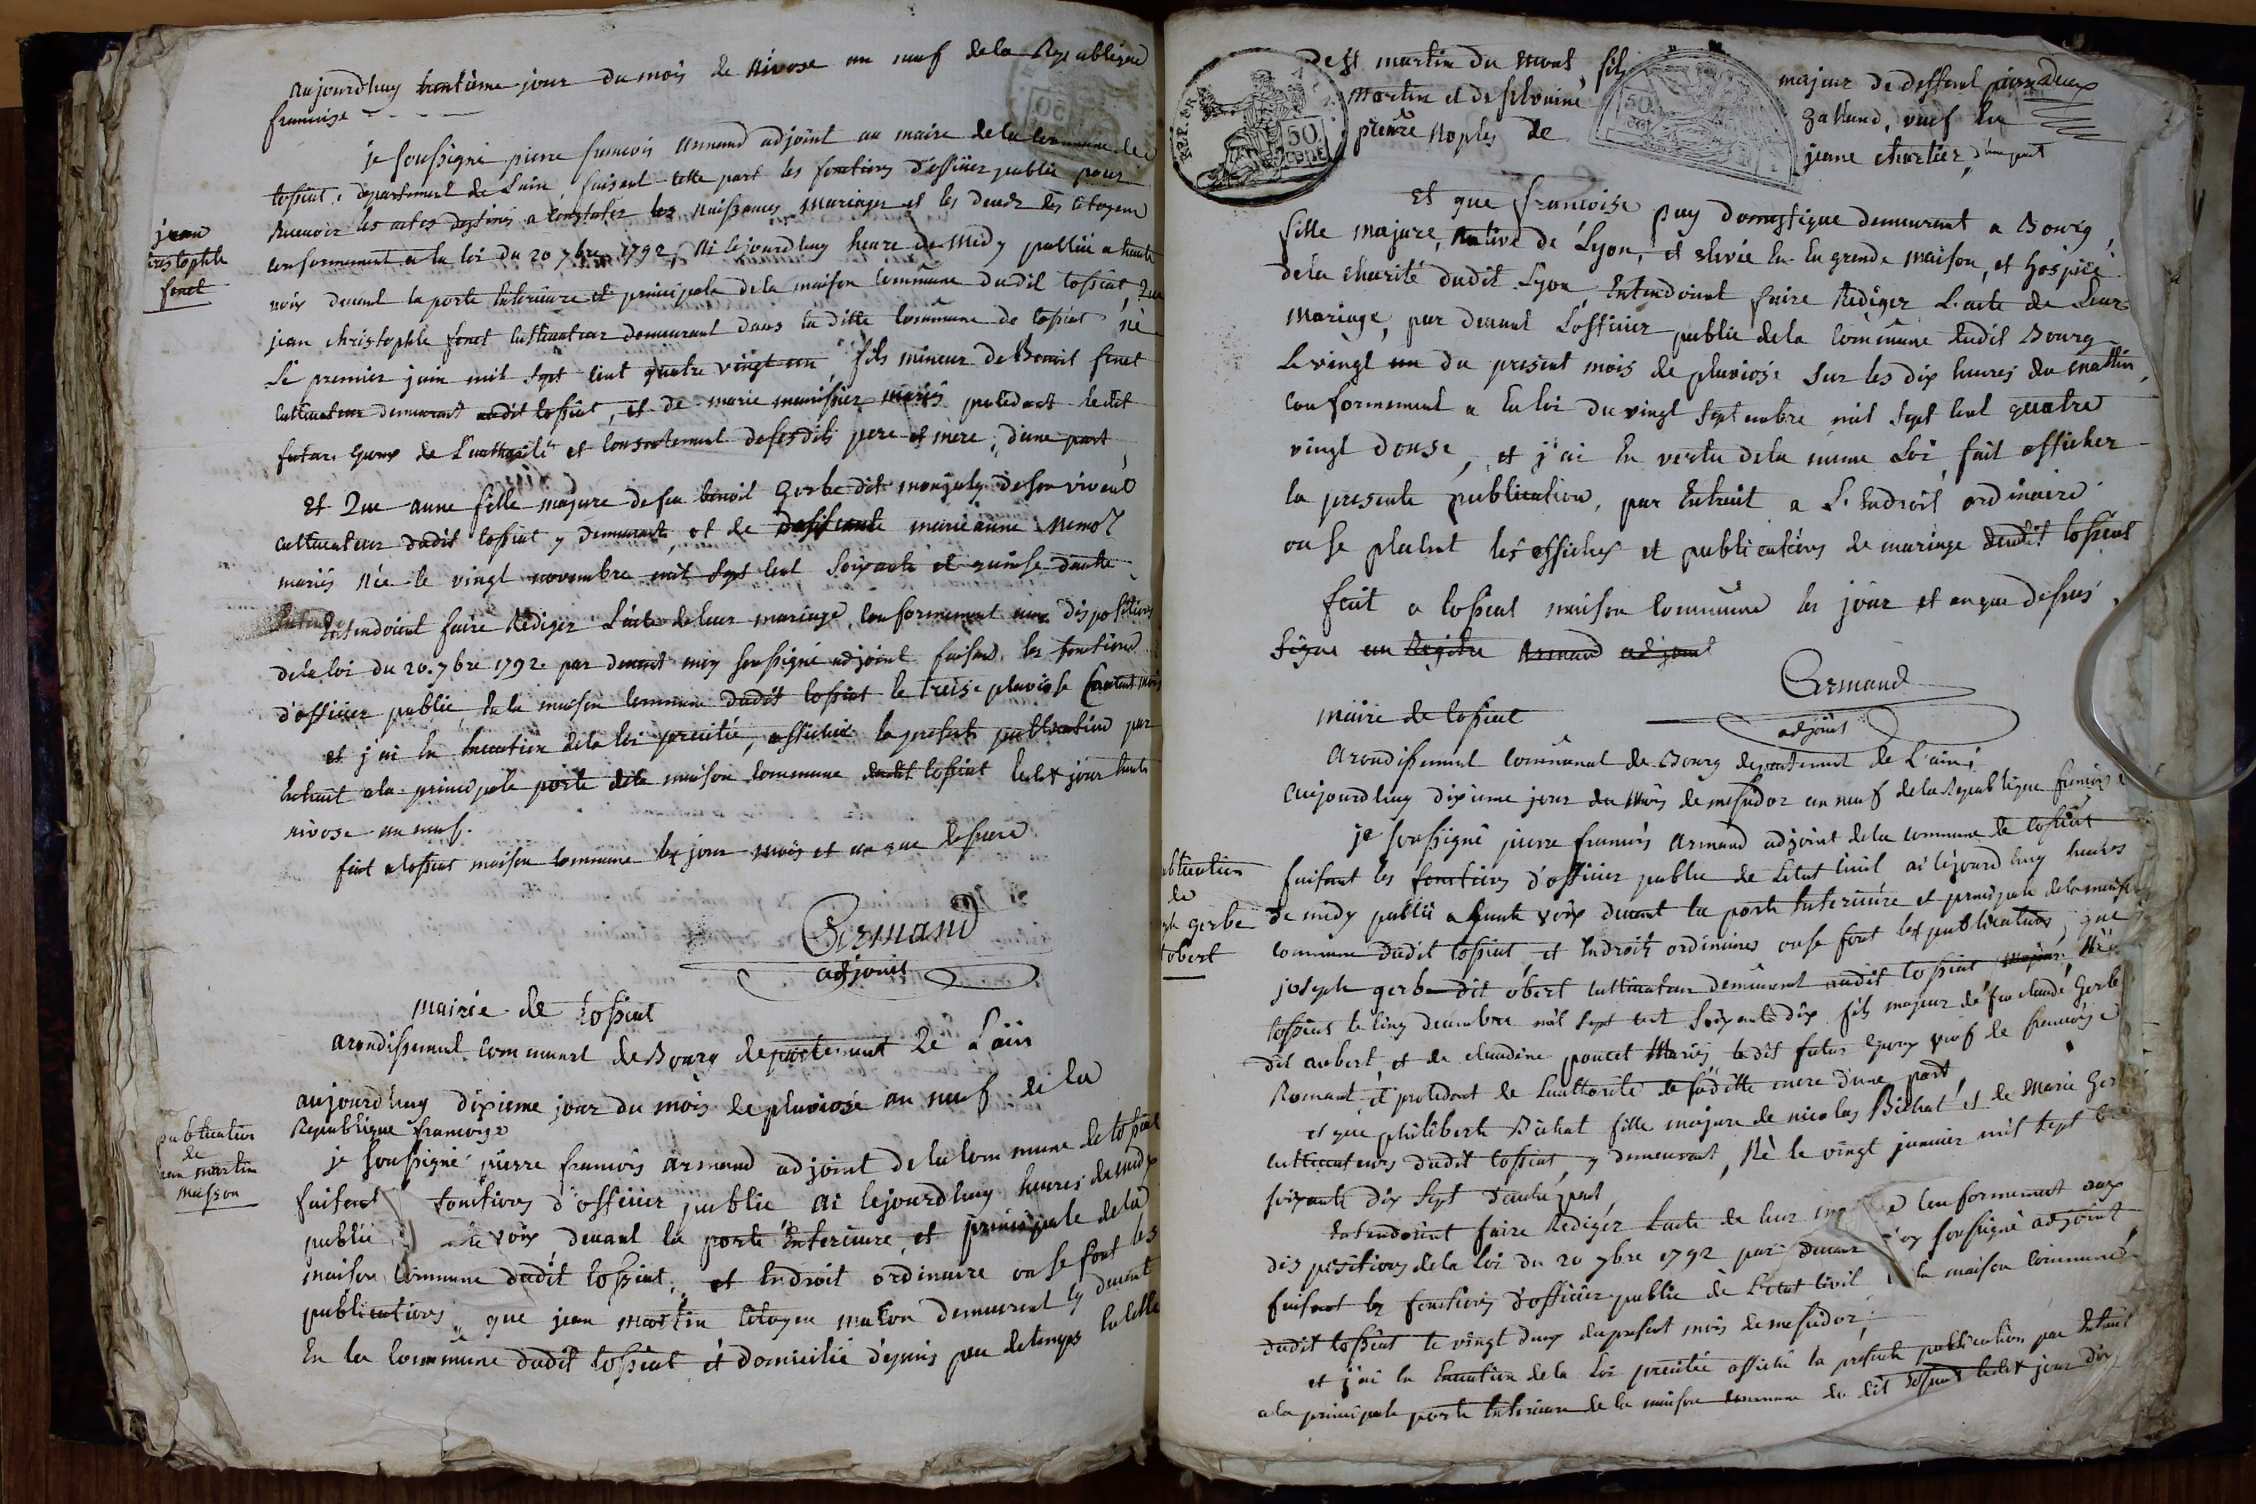 aujourdhuy trentième jour du mois de nivose an neuf de la Republique
francoise
je soussigné pierre francois armand adjoint au maire de la commune de
tossiat, departement de Lain faisant cette part les fonctions d'officier public pour
Recevoir les actes destinés a constater les naissances mariages et les deces des citoyens
conformement a la loi du 20 7bre 1792, Ai cejourdhuy heure de midy publié a haute
voix devant la porte Interieure et principale de la maison commune dudit tossiat, que
jean christophle fenet cultivateur demeurant dans la ditte commune de tossiat né
Le premier juin mil sept cent quatre vingt un fils mineur de Benoit fenet
cultivateur demeurant audit tossiat, et de marie mariés procedant ledit
futur Epoux de L'authorité et consentement desesdits pere et mere, d'une part
jean
christophle
fenet
Et Que anne fille majeure de feu benoit Gerbe dit de son vivant
cultivateur dudit tossiat y demeurant, et de marie anne
mariés née le vingt novembre mil sept cent soixante et quinse dautre
Entendoient faire Rediger L'acte de leur mariage, conformement aux dispositions
dela loi du 20. 7bre 1792. par devant moy soussigné adjoint faisant les fonctions
d'officier public, En la maison commune dudit tossiat le treise pluviose
et j'ai En Execution dela loi precitée, affiché la presente publication par
Extrait a la principale porte dela maison commune dudit tossiat jour trente
nivose an neuf.
fait a tossiat maison commune les jour mois et an que dessus
Armand
adjoint
mairie de tossiat
arondissement communal de Bourg departement de L'ain
aujourdhuy dixieme jour du mois de pluviose an neuf de la
Republique francoise
publication
de
jean martin
je soussigné pierre francois armand adjoint de la commune de tossiat
faisant fonctions d'officier public Ai cejourdhuy heures de midy
publié voix devant la porte Interieure, et principale de la
maison commune dudit tossiat, et Endroit ordinaire ou se font les
publications, que jean martin citoyen macon demeurant y devant
En la commune dudit tossiat et domicilié depuis peu de temps
de st martin du mont, fils majeur de deffunt
martin et de
pierre de
jeane chartier, d'une part
Et que francoise puy domestique demeurant a Bourg,
fille majeure, native de Lyon, et elevée En la grande maison, et hospice
dela charité dudit Lyon, Entendoient faire Rediger L'acte de Leur
mariage, par devant L'officier public dela commune dudit Bourg
Le vingt un du present mois de pluviose sur les dix heures du mattin,
conformement a la loi du vingt septembre mil sept cent quatre
vingt douse, et j'ai En vertu dela meme Loi, fait afficher
la presente publication, par Extrait a L'Endroit ordinaire
ou se placent les affiches et publications de mariage dudit tossiat
fait a tossiat maison commune les jour et an que dessus,
signé au Registre armand adjoint
Armand
adjoint
mairie de tossiat
arondissement communal de Bourg departement de L'ain,
aujourdhuy dixieme jour du mois de messidor an neuf de la Republique francoise
je soussigné pierre francois armand adjoint dela commune de tossiat
faisant les fonctions d'officier public de Letat civil ai cejourdhuy heures
de midy publié a haute voix devant la porte Interieure et principale dela maison
commune dudit tossiat, et Endroits ordinaires ou se font les publications, que
publication
de
gerbe
obert
joseph gerbe dit obert cultivateur demeurant audit tossiat, majeur, né a
tossiat le cinq decembre mil sept cent soixante dix fils majeur de feu claude Gerbe
dit aubert, et de claudine poncet mariés, ledit futur Epoux veuf de francoise
Romant, et procedant de Lauthorité de sa ditte mere d'une part
et que philiberte Bichat fille majeure de nicolas Bichat et de marie Ger
cultivateurs dudit tossiat, y demeurant, né le vingt janvier mil sept cent
soixante dix sept d'autre part
Entendoient faire Rediger Lacte de leur conformement aux
dispositions dela loi du 20 7bre 1792 par devant moy soussigné adjoint
faisant les fonctions d'officier public de L'etat civil la maison commune
dudit tossiat le vingt deux du present mois de messidor,
et j'ai En Execution dela loi precitée affiché la presente publication par Extrait
a la principale porte Interieure de la maison commune du dit tossiat jour dix